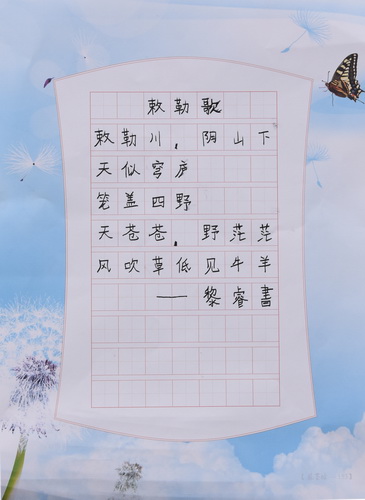 敕勒歌
敕勒川，阴山下
天似穹庐
笼盖四野
天苍苍，野茫茫
风吹草低见牛羊
——黎睿書